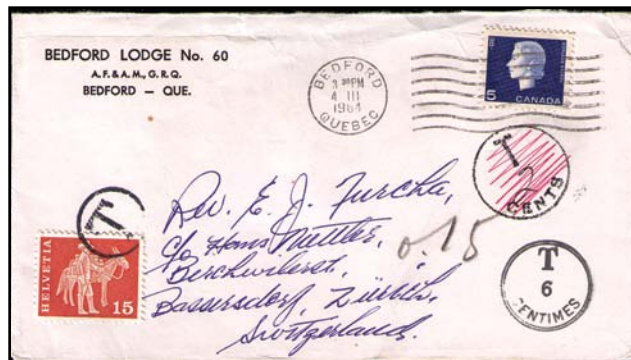 BEDFORD LODGE No. 60
A.F.& A.M., G.R.Q.
BEDFORD — QUE.
BEDFORD
3 30 PM
4 III
1964
QUEBEC
5
CANADA
T
2
CENTS
Rev. E. J. Furcha,
c/o Hans Mettler,
0.15
Bassersdorf, Zürich,
Switzerland.
T
HELVETIA
15
T
6
CENTIMES